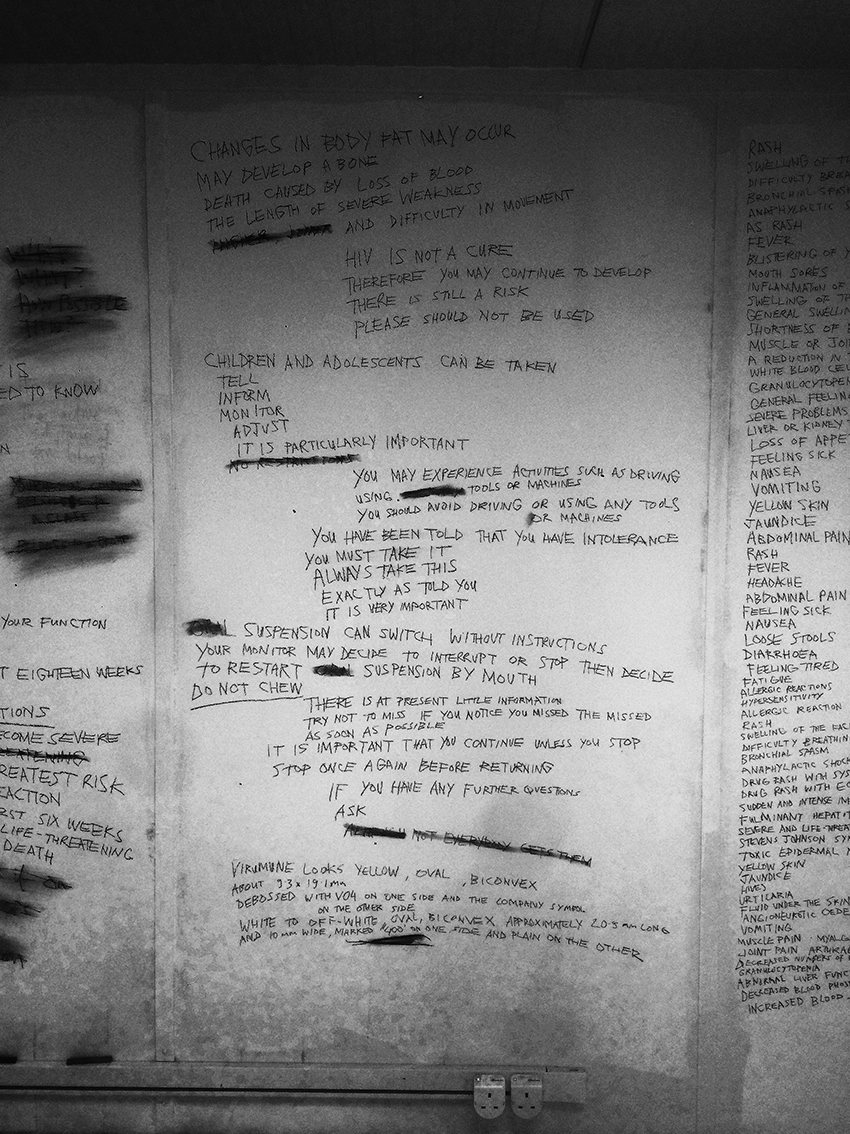 IS
ED TO KNOW
YOUR FUNCTION
T EIGHTEEN WEEKS
TIONS
ECOME SEVERE
REATEST RISK
EACTION
RST SIX WEEKS
LIFE-THREATENING
DEATH
CHANGES IN BODY FAT MAY OCCUR
MAY DEVELOP A BONE
DEATH CAUSED BY LOSS OF BLOOD
THE LENGTH OF SEVERE WEAKNESS
AND DIFFICULTY IN MOVEMENT
HIV IS NOT A CURE
THEREFORE YOU MAY CONTINUE TO DEVELOP
THERE IS STILL A RISK
PLEASE SHOULD NOT BE USED
CHILDREN AND ADOLESCENTS CAN BE TAKEN
TELL
INFORM
MONITOR
ADJUST
IT IS PARTICULARLY IMPORTANT
NO RESTRICTIONS
YOU MAY EXPERIENCE ACTIVITIES SUCH AS DRIVING
USING TOOLS OR MACHINES
YOU SHOULD AVOID DRIVING OR USING ANY TOOLS
OR MACHINES
YOU HAVE BEEN TOLD THAT YOU HAVE INTOLERANCE
YOU MUST TAKE IT
ALWAYS TAKE THIS
EXACTLY AS TOLD YOU
IT IS VERY IMPORTANT
SUSPENSION CAN SWITCH WITHOUT INSTRUCTIONS
YOUR MONITOR MAY DECIDE TO INTERRUPT OR STOP THEN DECIDE
TO RESTART SUSPENSION BY MOUTH
DO NOT CHEW
THERE IS AT PRESENT LITTLE INFORMATION
TRY NOT TO MISS IF YOU NOTICE YOU MISSED THE MISSED
AS SOON AS POSSIBLE
IT IS IMPORTANT THAT YOU CONTINUE UNLESS YOU STOP
STOP ONCE AGAIN BEFORE RETURNING
IF YOU HAVE ANY FURTHER QUESTIONS
ASK
NOT EVERYBODY GETS THEM
VIRUMUNE LOOKS YELLOW, OVAL, BICONVEX
ABOUT 9.3 x 19.1mm
DEBOSSED WITH V04 ON ONE SIDE AND THE COMPANY SYMBOL
ON THE OTHER SIDE
WHITE TO OFF-WHITE, OVAL, BICONVEX APPROXIMATELY 20.5 mm LONG
AND 10 mm WIDE, MARKED '400' ON ONE SIDE AND PLAIN ON THE OTHER
RASH
SWELLING OF TH
DIFFICULTY BREA
BRONCHIAL SPAS
ANAPHYLACTIC S
AS RASH
FEVER
BLISTERING OF Y
MOUTH SORES
INFLAMMATION OF
SWELLING OF TH
GENERAL SWELLIN
SHORTNESS OF B
MUSCLE OR JOIN
A REDUCTION IN T
WHITE BLOOD CEL
GRANULOCYTOPEN
GENERAL FEELING
SEVERE PROBLEMS
LIVER OR KIDNEY
LOSS OF APPET
FEELING SICK
NAUSEA
VOMITING
YELLOW SKIN
JAUNDICE
ABDOMINAL PAIN
RASH
FEVER
HEADACHE
ABDOMINAL PAIN
FEELING SICK
NAUSEA
LOOSE STOOLS
DIARRHOEA
FEELING TIRED
FATIGUE
ALLERGIC REACTIONS
HYPERSENSITIVITY
ALLERGIC REACTION
RASH
SWELLING OF THE FACE
DIFFICULTY BREATHIN
BRONCHIAL SPASM
ANAPHYLACTIC SHOCK
DRUG RASH WITH SYS
DRUG RASH WITH EO
SUDDEN AND INTENSE IN
FULMINANT HEPATIT
SEVERE AND LIFE-THREAT
STEVENS JOHNSON SYN
TOXIC EPIDERMAL N
YELLOW SKIN
JAUNDICE
HIVES
URTICARIA
FLUID UNDER THE SKIN
ANGIONEUROTIC OEDE
VOMITING
MUSCLE PAIN MYALG
JOINT PAIN ARTHRAL
DECREASED NUMBERS OF
GRANULOCYTOPENIA
ABNORMAL LIVER FUNC
DECREASED BLOOD PHOS
INCREASED BLOOD